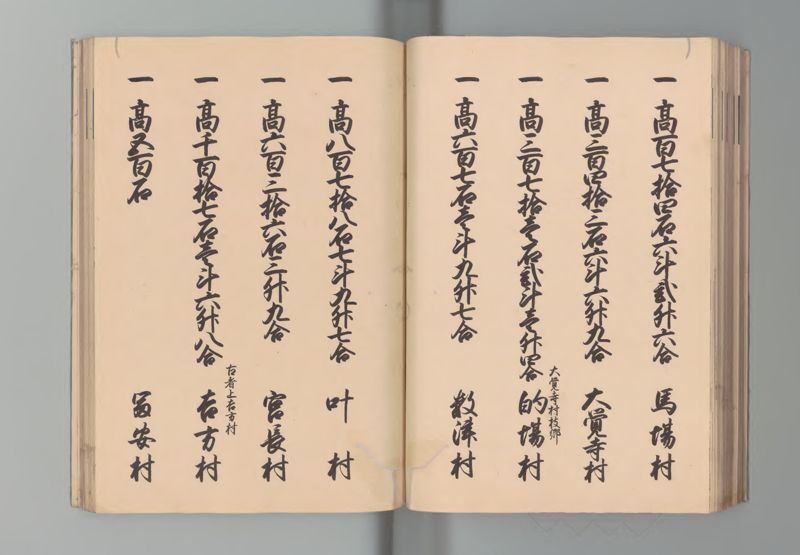 一 高百七拾四石六斗弐升六合 馬場村
一 高三百四拾三石六斗六升九合 大覚寺村
一 高三百七拾壱石弐斗壱升四合 大覚寺村枝郷 的場村
一 高六百七石壱斗九升七合 数津村
一 高八百七拾八石七斗九升七合 叶村
一 高六百三拾六石三升九合 宮長村
一 高千百拾七石壱斗六升八合 古者上吉方村 吉方村
一 高五百石 富安村